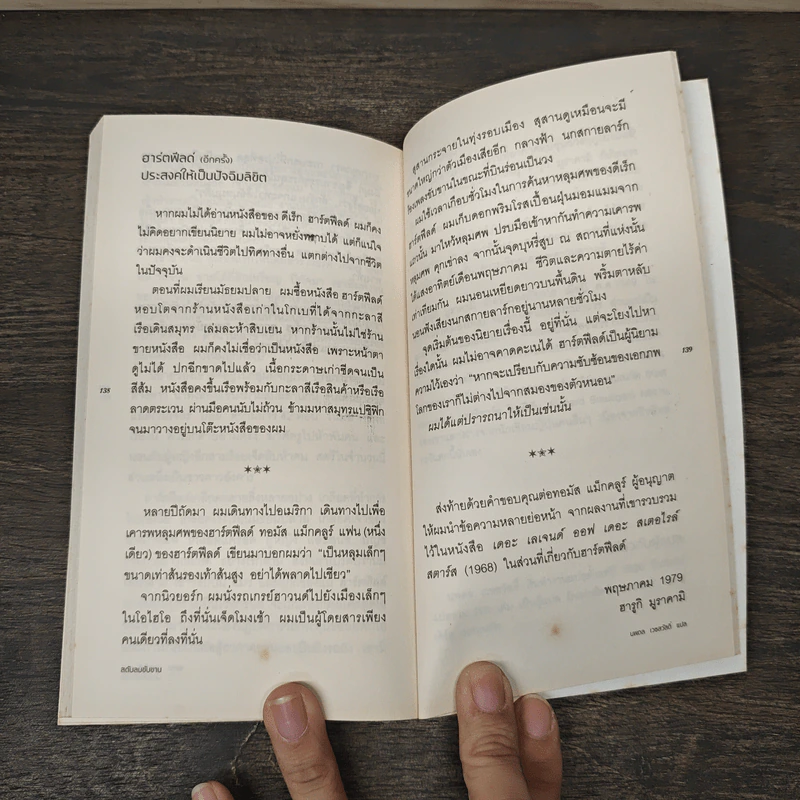 ฮาร์ตฟีลด์ (อีกครั้ง)
ประสงค์ให้เป็นปัจฉิมลิขิต
หากผมไม่ได้อ่านหนังสือของ ดีเร็ก ฮาร์ตฟีลด์ ผมก็คง
ไม่คิดอยากเขียนนิยาย ผมไม่อาจหยั่งทราบได้ แต่ก็แน่ใจ
ว่าผมคงจะดำเนินชีวิตไปทิศทางอื่น แตกต่างไปจากชีวิต
ในปัจจุบัน
ตอนที่ผมเรียนมัธยมปลาย ผมซื้อหนังสือ ฮาร์ตฟีลด์
หอบโตจากร้านหนังสือเก่าในโกเบที่ได้จากกะลาสี
เรือเดินสมุทร เล่มละห้าสิบเยน หากร้านนั้นไม่ใช่ร้าน
ขายหนังสือ ผมก็คงไม่เชื่อว่าเป็นหนังสือ เพราะหน้าตา
ดูไม่ได้ ปกฉีกขาดไปแล้ว เนื้อกระดาษเก่าซีดจนเป็น
สีส้ม หนังสือคงขึ้นเรือพร้อมกับกะลาสีเรือสินค้าหรือเรือ
ลาดตระเวน ผ่านมือคนนับไม่ถ้วน ข้ามมหาสมุทรแปซิฟิก
จนมาวางอยู่บนโต๊ะหนังสือของผม
✶✶✶
หลายปีถัดมา ผมเดินทางไปอเมริกา เดินทางไปเพื่อ
เคารพหลุมศพของฮาร์ตฟีลด์ ทอมัส แม็กคลูร์ แฟน (หนึ่ง
เดียว) ของฮาร์ตฟีลด์ เขียนมาบอกผมว่า “เป็นหลุมเล็กๆ
ขนาดเท่าส้นรองเท้าส้นสูง อย่าได้พลาดไปเชียว”
จากนิวยอร์ก ผมนั่งรถเกรย์ฮาวนด์ไปยังเมืองเล็กๆ
ในโอไฮโอ ถึงที่นั่นเจ็ดโมงเช้า ผมเป็นผู้โดยสารเพียง
คนเดียวที่ลงที่นั่น
138
สดับลมขับขาน
สุสานกระจายในทุ่งรอบเมือง สุสานดูเหมือนจะมี
ขนาดใหญ่กว่าตัวเมืองเสียอีก กลางฟ้า นกสกายลาร์ก
ร้องเพลงขับขานในขณะที่บินร่อนเป็นวง
ผมใช้เวลาเกือบชั่วโมงในการค้นหาหลุมศพของดีเร็ก
ฮาร์ตฟีลด์ ผมเก็บดอกพริมโรสเปื้อนฝุ่นมอมแมมจาก
แถวนั้น มาไหว้หลุมศพ ปรบมือเข้าหากันทำความเคารพ
หลุมศพ คุกเข่าลง จากนั้นจุดบุหรี่สูบ ณ สถานที่แห่งนั้น
ใต้แสงอาทิตย์เดือนพฤษภาคม ชีวิตและความตายไร้ค่า
เท่าเทียมกัน ผมนอนเหยียดยาวบนพื้นดิน พริ้มตาหลับ
นอนฟังเสียงนกสกายลาร์กอยู่นานหลายชั่วโมง
จุดเริ่มต้นของนิยายเรื่องนี้ อยู่ที่นั่น แต่จะโยงไปหา
เรื่องใดนั้น ผมไม่อาจคาดคะเนได้ ฮาร์ตฟีลด์เป็นผู้นิยาม
ความไว้เองว่า “หากจะเปรียบกับความซับซ้อนของเอกภพ
โลกของเราก็ไม่ต่างไปจากสมองของตัวหนอน”
ผมได้แต่ปรารถนาให้เป็นเช่นนั้น
✶✶✶
ส่งท้ายด้วยคำขอบคุณต่อทอมัส แม็กคลูร์ ผู้อนุญาต
ให้ผมนำข้อความหลายย่อหน้า จากผลงานที่เขารวบรวม
ไว้ในหนังสือ เดอะ เลเจนด์ ออฟ เดอะ สเตอไรล์
สตาร์ส (1968) ในส่วนที่เกี่ยวกับฮาร์ตฟีลด์
พฤษภาคม 1979
ฮารูกิ มูราคามิ
นพดล เวชสวัสดิ์ แปล
139